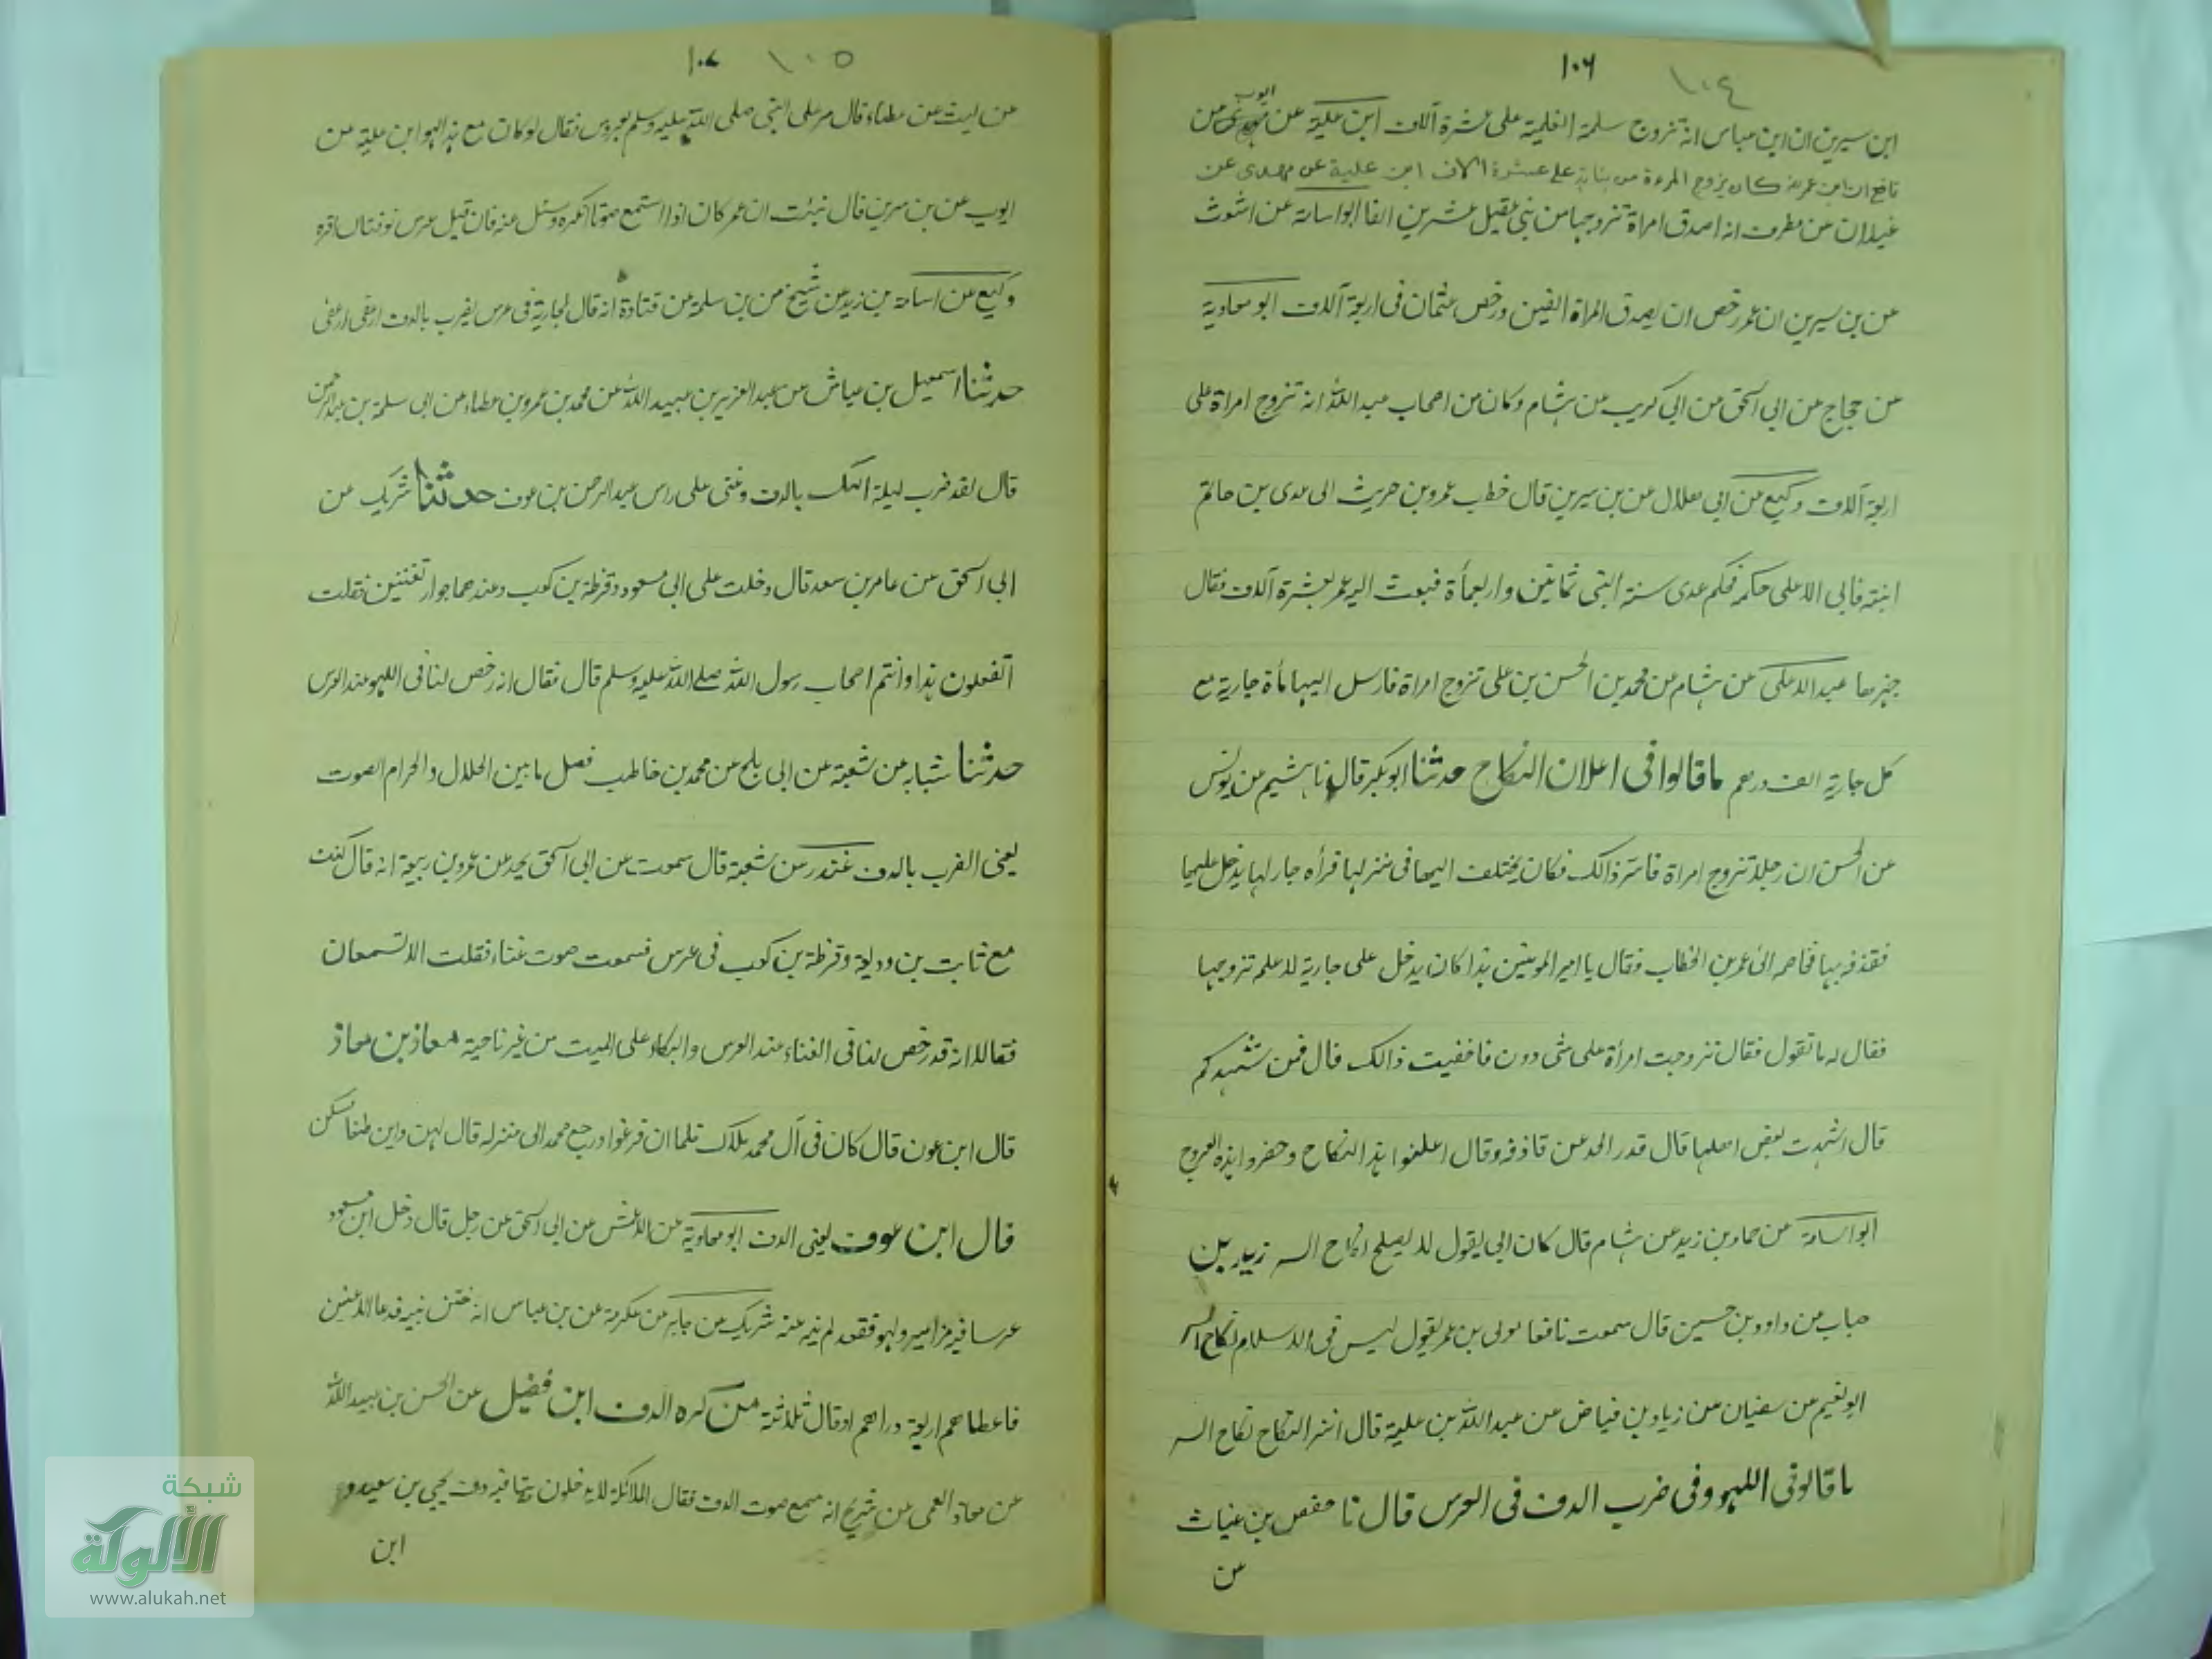 ١٠٦ ١٠٤
ايوب
ابن سيرين ان ابن عباس انه تزوج سلمة على عشرة آلاف ابن علية عن
نافع ان ابن عمر كان يزوج المرءة من بناته على عشرة الاف ابن علية عن مهدى عن
غيلان عن مطرف انه اصدق امراة تزوجها من بنى عقيل عشرين الفا ابو اسامة عن اشعث
عن بن سيرين ان عمر رخص ان يصدق المراة الفين ورخص عثمان فى اربعة آلاف ابو معاوية
عن حجاج عن ابى اسحق عن ابى كريب عن هشام وكان من اصحاب عبد الله انه تزوج امراة على
اربعة آلاف وكيع عن ابى هلال عن بن سيرين قال خطب عمرو بن حريث الى عدى بن حاتم
ابنته فابى الا على حكمه فحكم عدى سنة النبى ثمانين واربعمأة فبعث اليه عمر بعشرة آلاف فقال
جهزها عبد الاعلى عن هشام عن محمد بن الحسن بن على تزوج امراة فارسل اليها مأة جارية مع
كل جارية الف درهم ما قالوا فى اعلان النكاح حدثنا ابو بكر قال نا هشيم عن يونس
عن الحسن ان رجلا تزوج امراة فاسر ذالك فكان يختلف اليها فى منزلها فرأه جار لها يدخل عليها
فقذفه بها فخاصمه الى عمر بن الخطاب فقال يا امير المومنين هذا كان يدخل على جارية لا علم تزوجها
فقال له ما تقول فقال تزوجت امرأة على شى دون فاخفيت ذالك قال فمن شهدكم
قال اشهدت بعض اهلها قال فدر الحد عن قاذفه وقال اعلنوا هذا النكاح وحصنوا هذه الفروج
ابو اسامة عن حماد بن زيد عن هشام قال كان ابى يقول لا يصلح نكاح السر زيد بن
حباب عن داود بن حسين قال سمعت نافعا مولى بن عمر يقول ليس فى الاسلام نكاح السر
ابو نعيم عن سفيان عن زياد بن فياض عن عبد الله بن علية قال اشر النكاح نكاح السر
ما قالو فى اللهو وفى ضرب الدف فى العرس قال نا حفص بن غياث
عن
١٠٧ ١٠٥
عن ليث عن عطاء قال مر على النبى صلى الله عليه وسلم بعروس فقال لو كان مع هذا لهو ابن علية عن
ايوب عن بن سيرين قال نبئت ان عمر كان اذا استمع صوتا انكره وسئل عنه فان قيل عرس او ختان اقره
وكيع عن اسامة بن زيد عن شيخ عن بن سلمة عن قتادة انه قال لجارية فى عرس يضرب بالدف ارعفى ارعفى
حدثنا اسمعيل بن عياش عن عبد العزيز بن عبيد الله عن محمد بن عمرو بن عطاء عن ابى سلمة بن عبد الرحمن
قال لقد ضرب ليلة الملك بالدف وغنى على راس عبد الرحمن بن عوف حدثنا شريك عن
ابى اسحق عن عامر بن سعد قال دخلت على ابى مسعود وقرظة بن كعب وعندهما جوار تغنين فقلت
اتفعلون هذا وانتم اصحاب رسول الله صلى الله عليه وسلم قال فقال انه رخص لنا فى اللهو عند العرس
حدثنا شبابه عن شعبة عن ابى بلج عن محمد بن خاطب فصل ما بين الحلال والحرام الصوت
يعنى الضرب بالدف غندر عن شعبة قال سمعت عن ابى اسحق يحد عن عمرو بن ربيعة انه قال كنت
مع ثابت بن وديعة وقرظة بن كعب فى عرس فسمعت صوت غناء فقلت الا تسمعان
فقالا انه قد رخص لنا فى الغناء عند العرس والبكاء على الميت من غير ناحية معاذ بن معاذ
قال ابن عون قال كان فى آل محمد ملاك فلما ان فرغوا ورجع محمد الى منزله قال لهن واين طعامكن
قال ابن عون يعنى الدف ابو معاوية عن الاعمش عن ابى اسحق عن رجل قال دخل ابن مسعود
عرسا فيه مزامير ولهو فقعد لم ينه عنه شريك عن جابر عن عكرمة عن بن عباس انه ختن بنيه فدعا اللاعبين
فاعطاهم اربعة دراهم او قال ثلاثة من كره الدف ابن فضيل عن الحسن بن عبيد الله
عن معاذ العمى عن شريح انه سمع صوت الدف فقال الملائكة لا يدخلون بيتا فيه دف يحيى بن سعيد و
ابن
شبكة
الألوكة
www.alukah.net